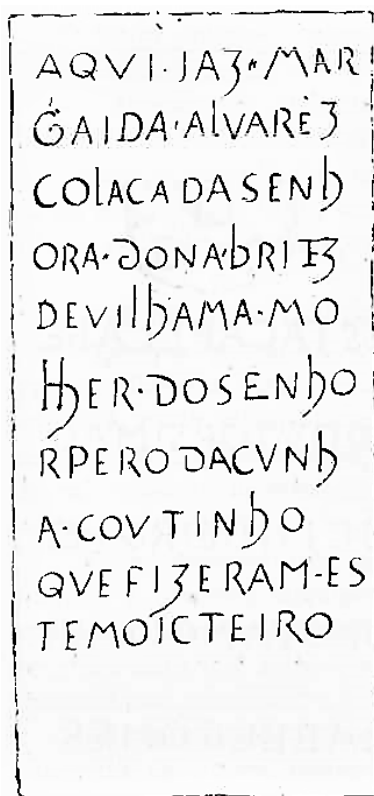 AQVI·JAZ·MAR
GAIDA·AlVAREZ
COlACADASENh
ORA·DONA·bRITZ
DEVIlhAMA·MO
lhER·DOSENhO
RPERODACVNh
A·COVTINhO
QVEFIZERAM·ES
TEMOICTEIRO